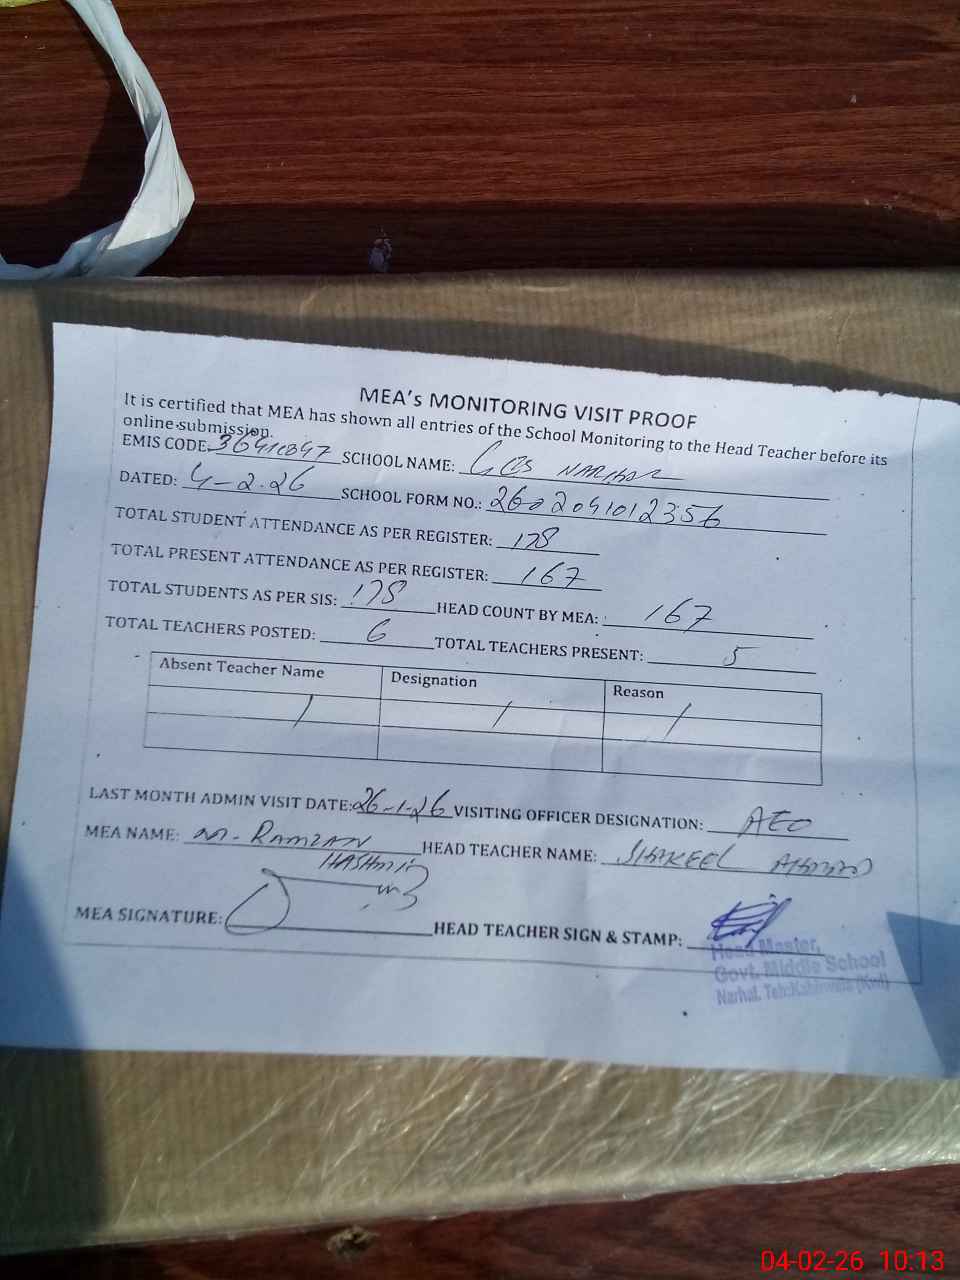 MEA's MONITORING VISIT PROOF
It is certified that MEA has shown all entries of the School Monitoring to the Head Teacher before its
online submission.
EMIS CODE: SCHOOL NAME:
DATED: 4-2-26 SCHOOL FORM NO.: 2602041012356
TOTAL STUDENT ATTENDANCE AS PER REGISTER: 178
TOTAL PRESENT ATTENDANCE AS PER REGISTER: 167
TOTAL STUDENTS AS PER SIS: 178 HEAD COUNT BY MEA: 167
TOTAL TEACHERS POSTED: 6 TOTAL TEACHERS PRESENT: 5
Absent Teacher Name Designation Reason
/ / /
LAST MONTH ADMIN VISIT DATE: 26-1-26 VISITING OFFICER DESIGNATION: AEO
MEA NAME: M-RAMZAN HEAD TEACHER NAME: SHAKEEL AHMAD
HASHMI
MEA SIGNATURE: HEAD TEACHER SIGN & STAMP:
Head Master,
Govt. Middle School
Narhal, Teh:Kabirwala (Kwl)
04-02-26 10:13